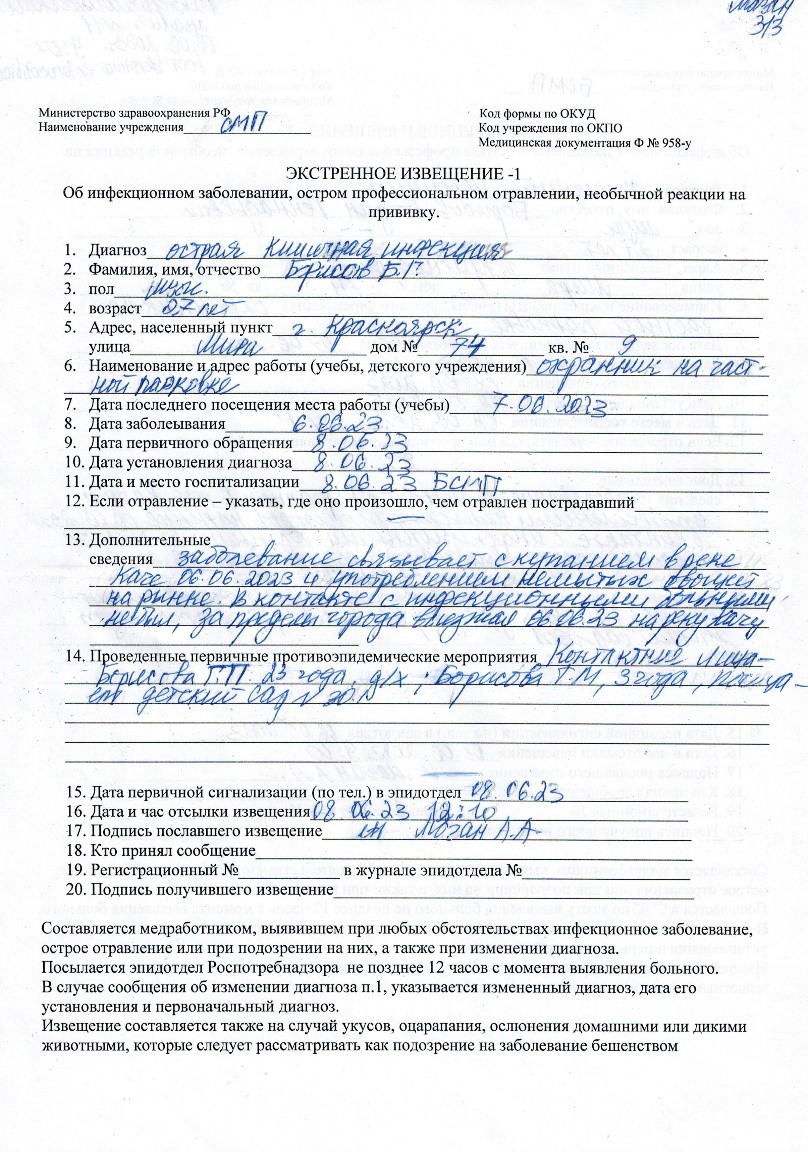 Мозан
3/3
Министерство здравоохранения РФ
Наименование учреждения СМП
Код формы по ОКУД
Код учреждения по ОКПО
Медицинская документация Ф № 958-у
ЭКСТРЕННОЕ ИЗВЕЩЕНИЕ -1
Об инфекционном заболевании, остром профессиональном отравлении, необычной реакции на
прививку.
1. Диагноз острая кишечная инфекция
2. Фамилия, имя, отчество Борисов Б.Г.
3. пол муж.
4. возраст 27 лет
5. Адрес, населенный пункт г. Красноярск
улица Мира дом № 74 кв. № 9
6. Наименование и адрес работы (учебы, детского учреждения) охранник на част-
ной парковке
7. Дата последнего посещения места работы (учебы) 7.06.2023
8. Дата заболеывания 6.06.23
9. Дата первичного обращения 8.06.23
10. Дата установления диагноза 8.06.23
11. Дата и место госпитализации 8.06.23 БСМП
12. Если отравление – указать, где оно произошло, чем отравлен пострадавший
—
13. Дополнительные
сведения заболевание связывает с купанием в реке
Каче 06.06.2023 и употреблением немытых овощей
на рынке. В контакте с инфекционными больными
не был, за пределы города выезжал 06.06.23 на реку Качу
14. Проведенные первичные противоэпидемические мероприятия Контактные лица-
Борисова Г.П. 23 года, д/х; Борисова Т.М, 3 года, посеща-
ет детский сад N 20.
15. Дата первичной сигнализации (по тел.) в эпидотдел 08.06.23
16. Дата и час отсылки извещения 08.06.23 12:10
17. Подпись пославшего извещение Мозан А.А-
18. Кто принял сообщение
19. Регистрационный № в журнале эпидотдела №
20. Подпись получившего извещение
Составляется медработником, выявившем при любых обстоятельствах инфекционное заболевание,
острое отравление или при подозрении на них, а также при изменении диагноза.
Посылается эпидотдел Роспотребнадзора не позднее 12 часов с момента выявления больного.
В случае сообщения об изменении диагноза п.1, указывается измененный диагноз, дата его
установления и первоначальный диагноз.
Извещение составляется также на случай укусов, оцарапания, ослонения домашними или дикими
животными, которые следует рассматривать как подозрение на заболевание бешенством